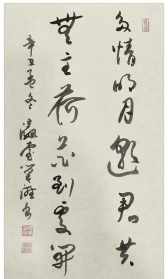 多情明月邀君共
無主荷花到處開
辛丑孟冬